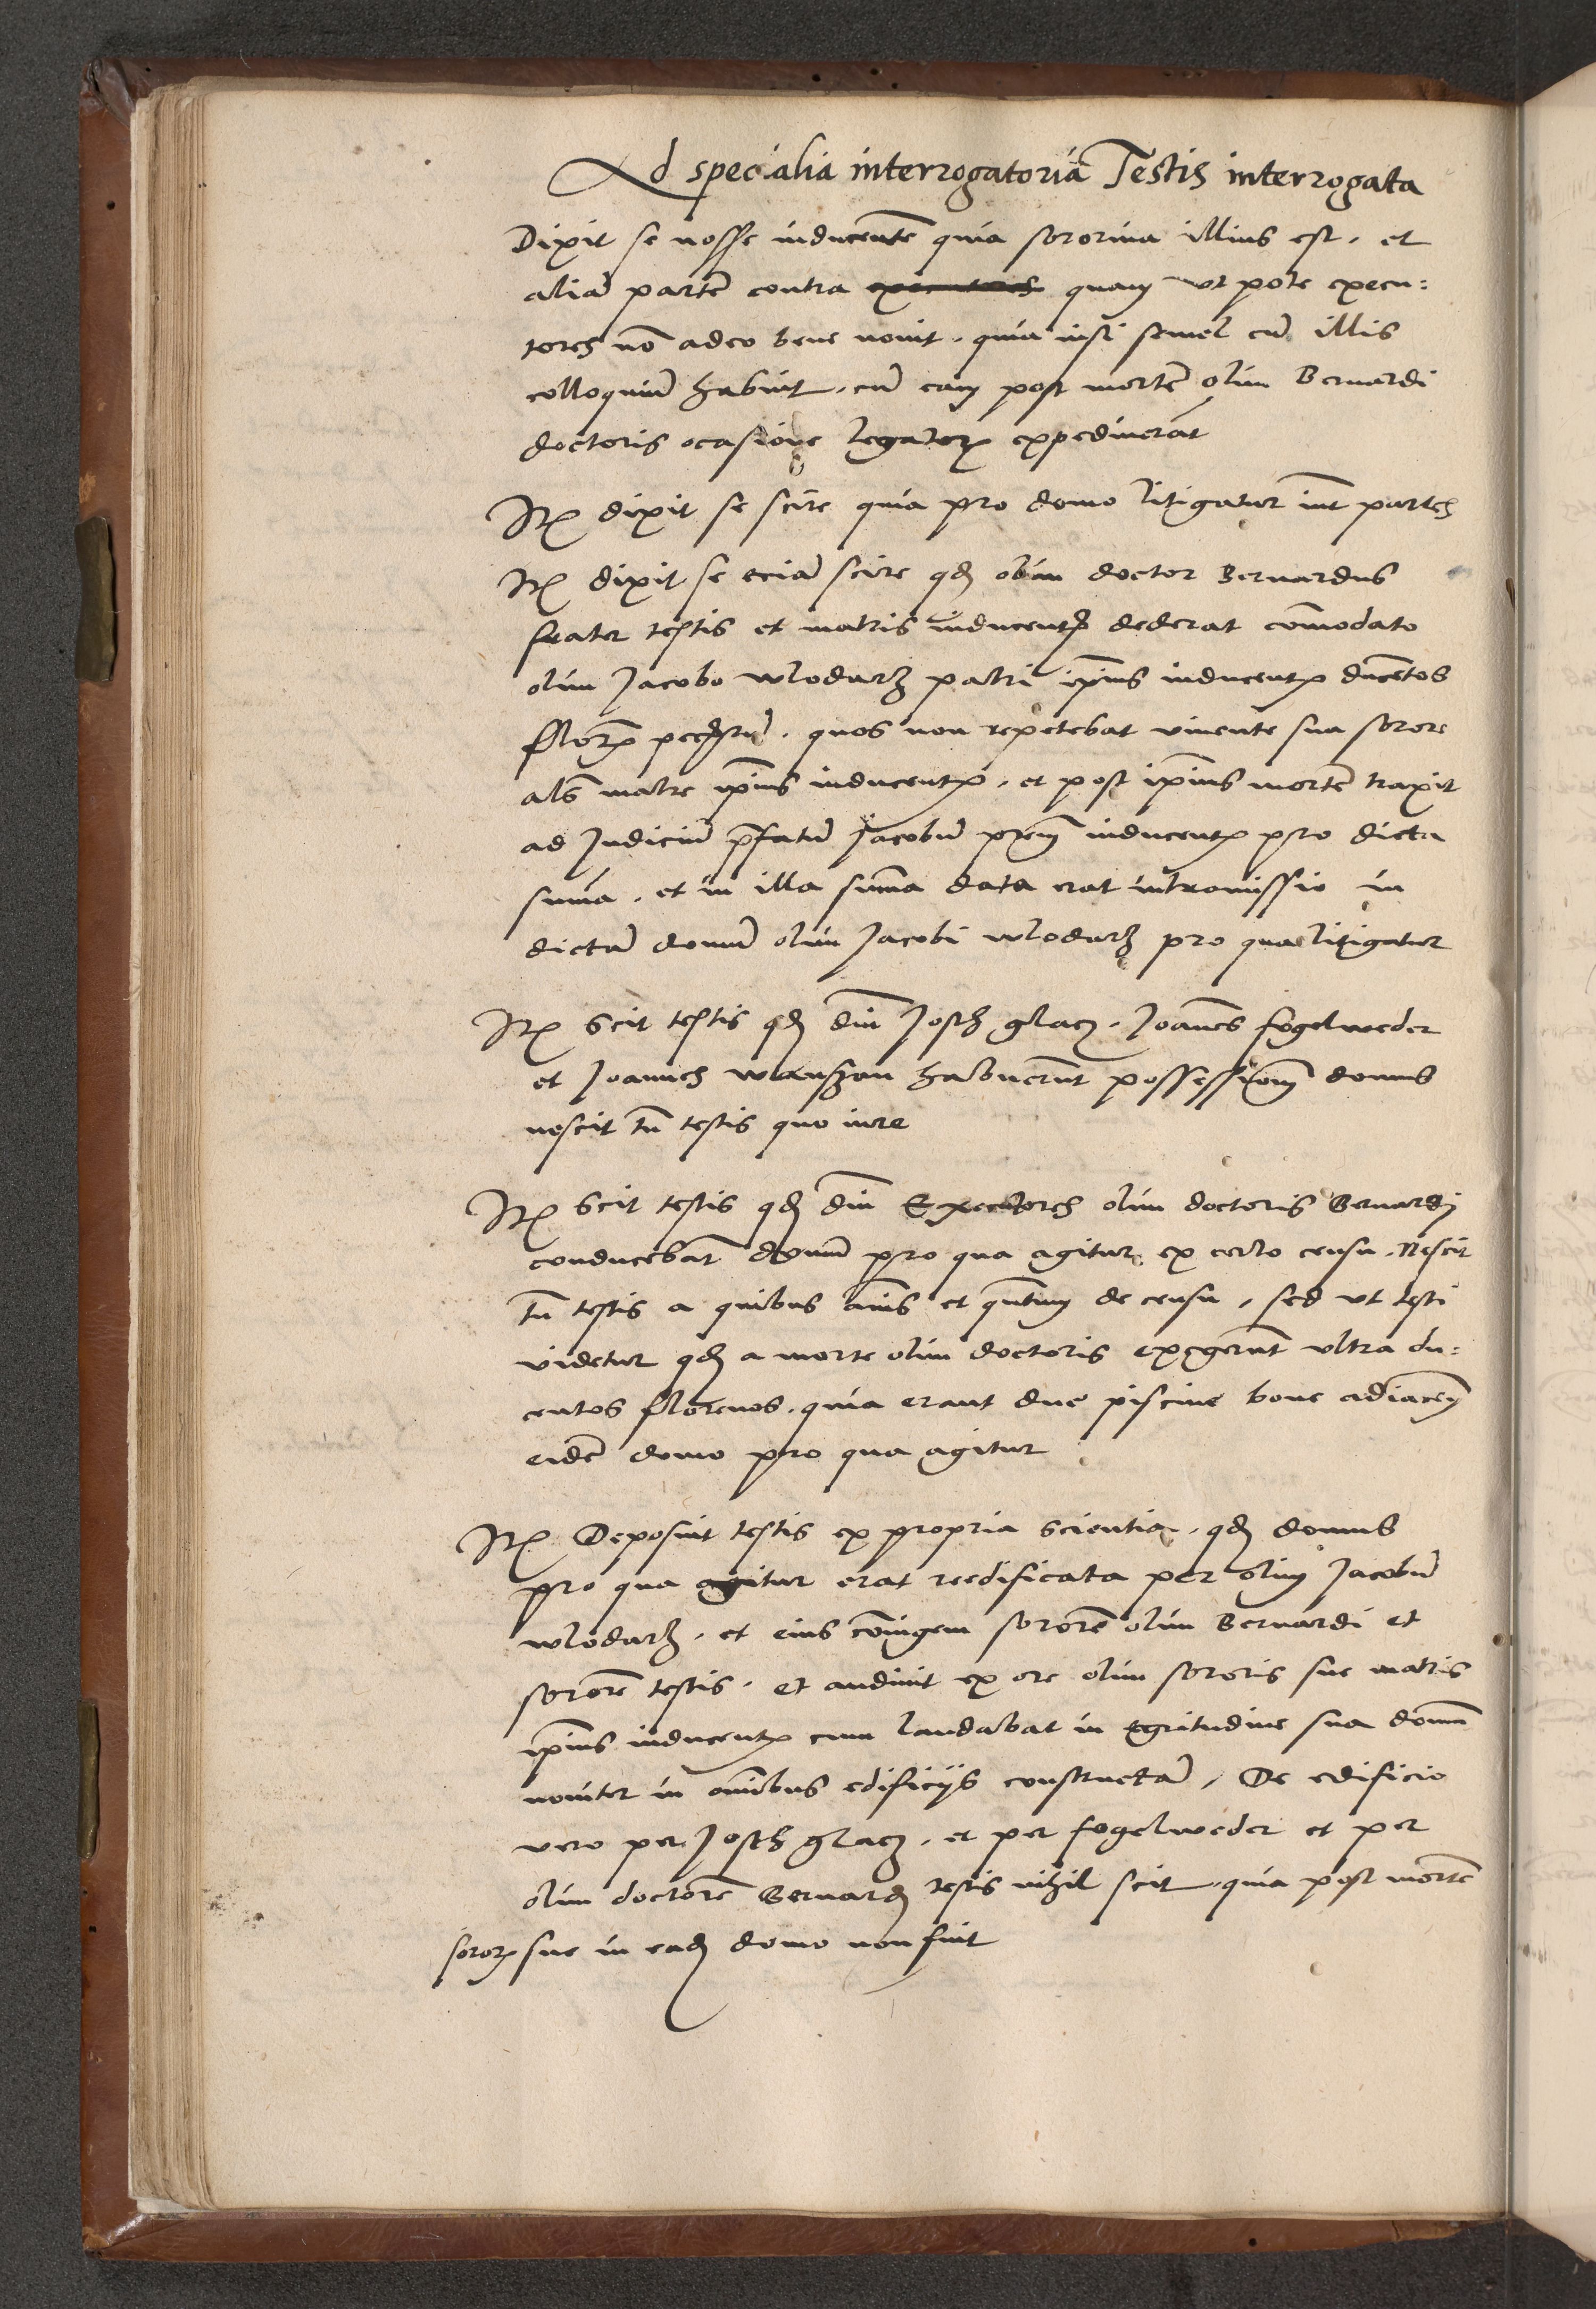 Ad specialia interrogatoria Testis interrogata
Dixit se nosse inducentē quia sororina illius est, et
aliā partē contra quam ut pote execu=
tores nō adeo bene novit, quia nisi semel cū illis
colloquiū habuit, cū eam post mortē olim Bernardi
doctoris ocasione legatoꝝ expediuerāt
Itꝫ dixit se scire quia pro domo litigatur int partes
Itꝫ dixit se eciā scire qđ olim doctor Bernardus
frater testis et matris inducentꝭ dederat cōmodato
olim Jacobo wlodarz patri ip̄ius inducentꝭ ducētos
floreꝝ quos non repetebat vivente sua sorore
als matre ip̄ius inducentꝭ, et post ip̄ius mortē traxit
ad Judiciū p̄fatū Jacobū prem̄ inducentꝭ pro dicta
summa, et in illa sum̄a data erat intromissio in
dictā domū olim Jacobi wlodarz pro qua litigatur
Itꝫ scit testis qđ dn̄i Josth glacz, Joan̄es fogelweder
et Joannes habuerūt possessionē domus
nescit tn̄ testis quo iure
Itꝫ scit testis qđ dn̄i Executores olim doctoris Bernardj
conducebāt domū pro qua agitur ex certo censu, Nescit
tn̄ testis a quibus an̄is et quātum de censu, sed ut testi
videtur qđ a morte olim doctoris exegerūt ultra du=
centos florenos, quia erant due piscine bone adiacen̄
eidē domo pro qua agitur
Itꝫ Deposuit testis ex propria scientia, qđ domus
pro qua agitur erat reedificata per olim Jacobū
wlodarz, et eius cōiugem sororē olim Bernardi et
sororē testis, et audivit ex ore olim sororis sue matris
ip̄ius inducentꝭ cum laudabat in egritudine sua domū
noviter in om̄ibus edificijs constructā, De edificio
vero per Josth glacz, et per fogelweder et per
olim doctorē Bernardꝫ testis nihil scit, quia post mortē
sororꝭ sue in eadꝫ domo non fuit